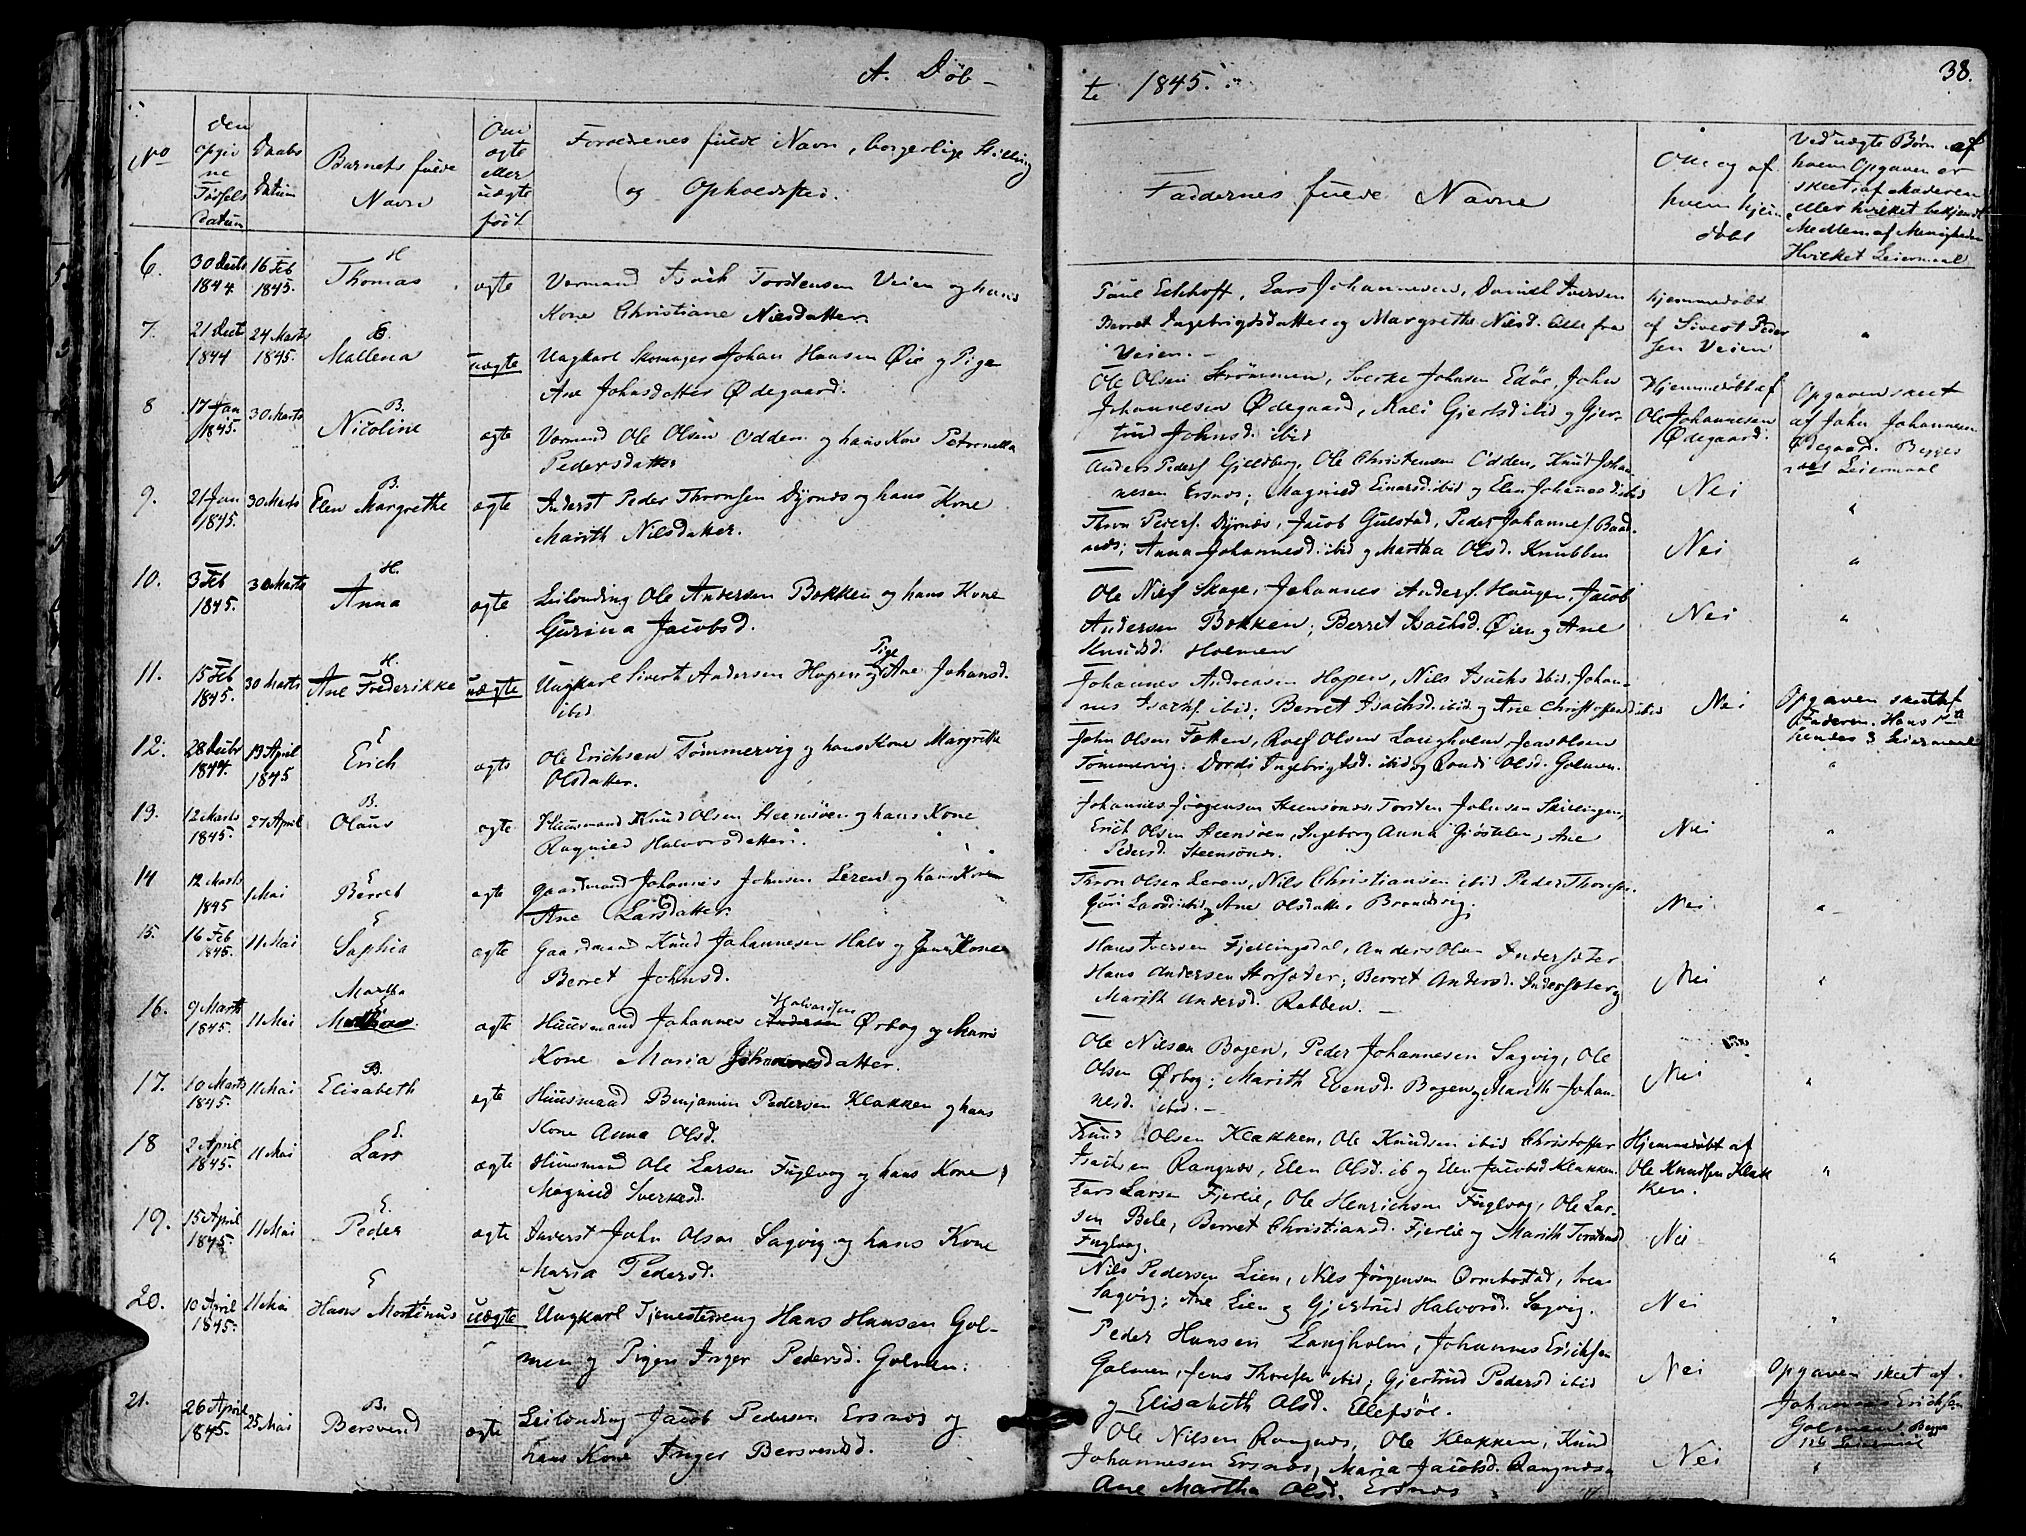 A. Døb-
te 1845.
38.
No
den opgivne Fødsels Datum
Daabs Datum
Barnets fulde Navn
Om ægte eller uægte født.
Forældrenes fulde Navn, borgerlige Stilling og Opholdsted.
Faddernes fulde Navne
Om og af hvem hjemdøbt
Ved uægte Børn af hvem Opgaven er skeet, af Moderen eller hvilket bekjendt Medlem af Menigheden Hvilket Leiermaal
6. 30 Decbr 1844. 16 Feb 1845. H Thomas ægte
Isach Torstensen Veien og hans
Kone Christiane Nilsdatter.
Lars Johannesen, Daniel Iversen
Berret Ingebrigtsdatter og Margrethe Nilsd. alle fra
Veien.
hjemmedøbt
af Sivert Peder
sen Veien
7. 21 Decb 1844 24 Marts 1845. E Mallena uægte
Ungkarl Skomager Johan Hansen Øie og Pige
Ane Johnsdatter Ødegaard.
Ole Olsen Strømmen, Sverke Johnsen Edøe, John
Johannesen Ødegaard, Mali Gjertsd ibid og Gjer-
trud Johnsd. ibid
Hjemmedøbt af
Ole Johannesen
Ødegaard.
Opgaven skeet
af John Johannesen
Ødegaard. Begges
Leiermaal
8 17 Jan 1845. 30 Marts B. Nicoline ægte
Ole Olsen Odden og hans Kone Petronella
Pedersdatter
Anders Peders. Gjeldberg, Ole Christensen Odden, Knud Johan-
nesen Ersnes; Magnild Einarsd ibid og Elen Johannesd ibid
Nei
9. 21 Jan 1845. 30 Marts B. Elen Margrethe ægte
Inderst Peder Thronsen Dyrnes og hans Kone
Marith Nilsdatter.
Thron Peders. Dyrnæs, Jacob Gulstad, Peder Johannes. Baad-
næs; Anna Johannesd. ibid og Martha Olsd. Knubben
Nei
10. 3 Feb 1845. 30 Marts H. Anna ægte
Leilending Ole Andersen Bekken og hans Kone
Gurina Jacobsd.
Ole Nils. Skage, Johannes Anders. Haugen, Jacob
Andersen Bekken; Berret Isachsd. Øien og Ane
Knudsd. Holmen
Nei
11. 15 Feb 1845. 30 Marts H. Ane Frederikke uægte
Ungkarl Sivert Andersen Hopen og Pige Ane Johansd.
ibid
Johannes Andreasen Hopen, Nils Isachs. ibid, Johan-
nes Isachs. ibid; Berret Isachsd. ibid og Ane Christoffersd ibid
Nei
Opgaven skeet af
Faderen. Hans 1ste
hendes 3 Leiermaal
12. 28 Decbr 1844. 13 April 1845 E Erich ægte
Ole Erichsen Tømmervig og hans Kone Margrethe
Olsdatter.
John Olsen Fætten, Roel Olsen Langholm, Jens Olsen
Tømmervig. Dordi Ingebrigtsd. ibid og Randi Olsd. Golmen.
13. 12 Marts 1845. 27 April B. Olaus ægte
Huusmand Knud Olsen Steensøen og hans Kone
Ragnild Halvorsdatter.
Johannes Jørgensen Steensønes, Torsten Johnsen Skillingen,
Erich Olsen Steensøen, Ingeborg Anna Gjøstølen, Ane
Pedersd. Steensønes.
Nei
14 12 Marts 1845 1 Mai E Berret ægte
Gaardmand Johannes Johnsen Leren og hans Kone
Ane Larsdatter.
Thron Olsen Leren, Nils Christiansen ibid Peder Thronsen.
Guri Larsd ibid og Ane Olsdatter Brandsvig.
Nei
15. 16 Feb 1845. 11 Mai E Sophia ægte
Gaardmand Knud Johannesen Hals og hans Kone
Berret Johnsd.
Hans Iversen Fjellingsdal, Anders Olsen Indersæter
Hans Andersen Storsæter; Berret Andersd. Indersæter og
Marith Andersd. Rabben.
Nei
16. 9 Marts 1845. 11 Mai Martha E ægte
Huusmand Johannes Andersen Halvorsen Ørbog og hans
Kone Maria Johannesdatter.
Ole Nilsen Bogen, Peder Johannesen Sagvig, Ole
Olsen Ørbog; Marith Evensd. Bogen og Marith Johan-
nesd. ibid.
Nei
17. 10 Marts 1845. 11 Mai B. Elisabeth ægte
Huusmand Benjamin Pedersen Klakken og hans
Kone Anna Olsd.
Knud Olsen Klakken, Ole Knudsen ibid Christoffer
Isachsen Rangnæs, Elen Olsd. ib og Elen Jacobsd Klakken.
Hjemmedøbt af
Ole Knudsen Klak
ken.
18 2 April 1845. 11 Mai E. Lars ægte
Huusmand Ole Larsen Fuglvog og hans Kone
Magnild Sverkesd.
Lars Larsen Fjerlie, Ole Henrichsen Fuglvog, Ole Lar-
sen Bele, Berret Christiansd. Fjerlie og Marith Torstensd
Fuglvog.
Nei
19. 15 April 1845 11 Mai E. Peder ægte
Inderst John Olsen Sagvig og hans Kone
Maria Pedersd.
Nils Pedersen Lien, Nils Jørgensen Ormbostad, Iver
Sagvig; Ane Lien og Gjertrud Halvorsd. Sagvig.
Nei
20. 10 April 1845. 11 Mai E Hans Mortinus uægte
Ungkarl Tjenestedreng Hans Hansen Gol-
men og Pigen Inger Pedersd. Golmen.
Peder Hansen Langholm, Johannes Erichsen
Golmen, Jens Thoresen ibid; Gjertrud Pedersd ibid
og Elisabeth Olsd. Ellefsøe.
Nei
Opgaven skeet af
Johannes Erichsen
Golmen. Begge
1ste Leiermaal
21. 26 April 1845. 25 Mai B. Bersvend ægte
Leilending Jacob Pedersen Ersnes og
hans Kone Inger Bersvendsd.
Ole Nilsen Rangnes, Ole Klakken, Knud
Johannesen Ersnes, Maria Jacobsd. Rangnes og
Ane Martha Olsd. Ersnes
Nei